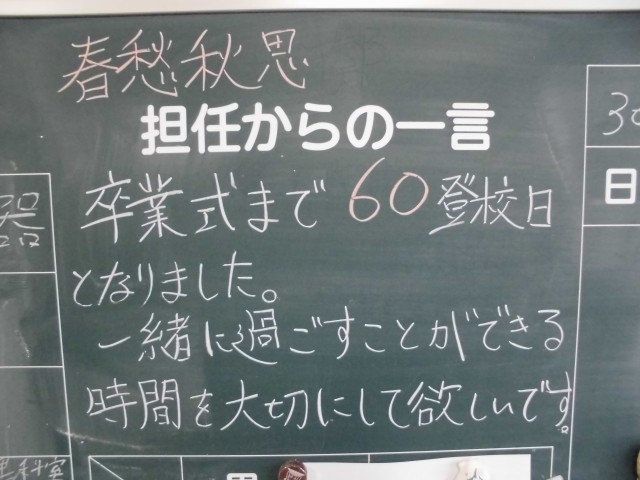 春愁秋思
担任からの一言
卒業式まで60登校日
となりました。
一緒に過ごすことができる
時間を大切にして欲しいです。
器
30
日